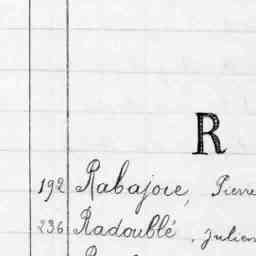 R
192 Rabajoie, Pierre
236 Radoublé, Julien